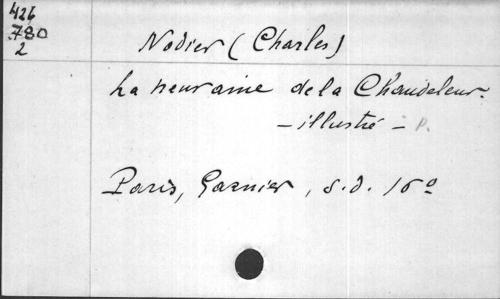 426
780
2
Nodier (Charles)
La neuvaine de la Chandeleur.
— illustré — P.
Paris, Garnier, s.d. 16º